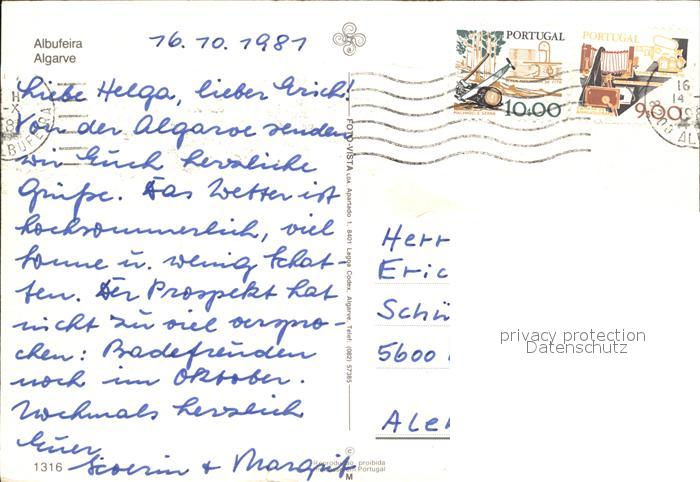 Albufeira
Algarve
16.10.1981
Liebe Helga, lieber Erich!
Von der Algarve senden
wir Euch herzliche
Grüße. Das Wetter ist
hochsommerlich, viel
Sonne u. wenig Schat-
ten. Der Prospekt hat
nicht zu viel verspro-
chen: Badefreuden
noch im Oktober.
Nochmals herzlich
Euer
Severin + Margrit
1316
FOTO-VISTA Lda. Apartado 1, 8401 Lagoa Codex, Algarve Telef. (082) 57285
©
Reprodução proibida
Portugal
M
PORTUGAL
10.00
PORTUGAL
9.00
16
14
Herr
Eric
Schü
5600
Ale
privacy protection
Datenschutz